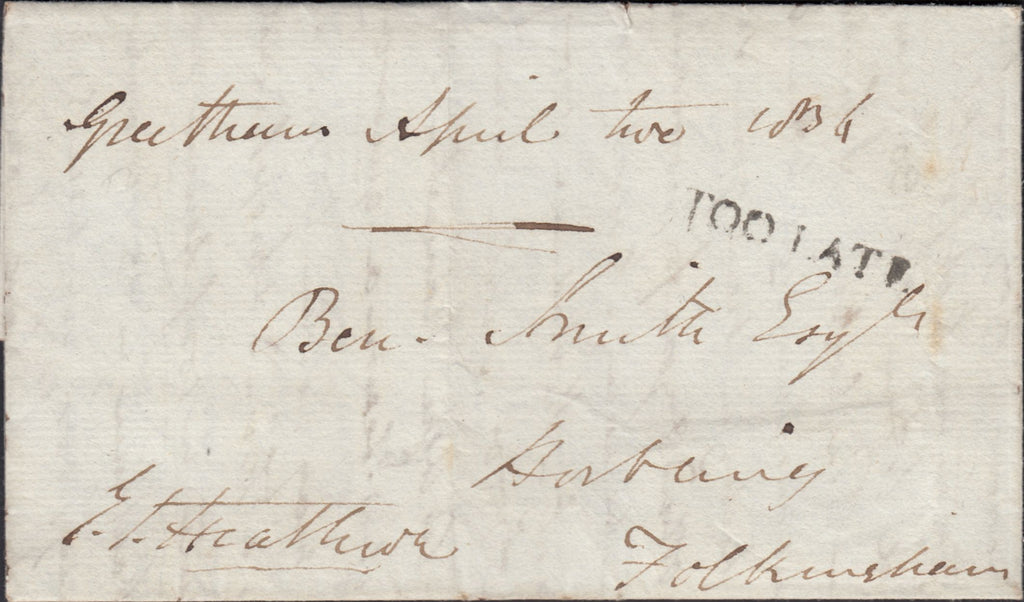 Greetham April two 1836
TOO LATE
Ben. Smith Esqre
Horbling
Folkingham